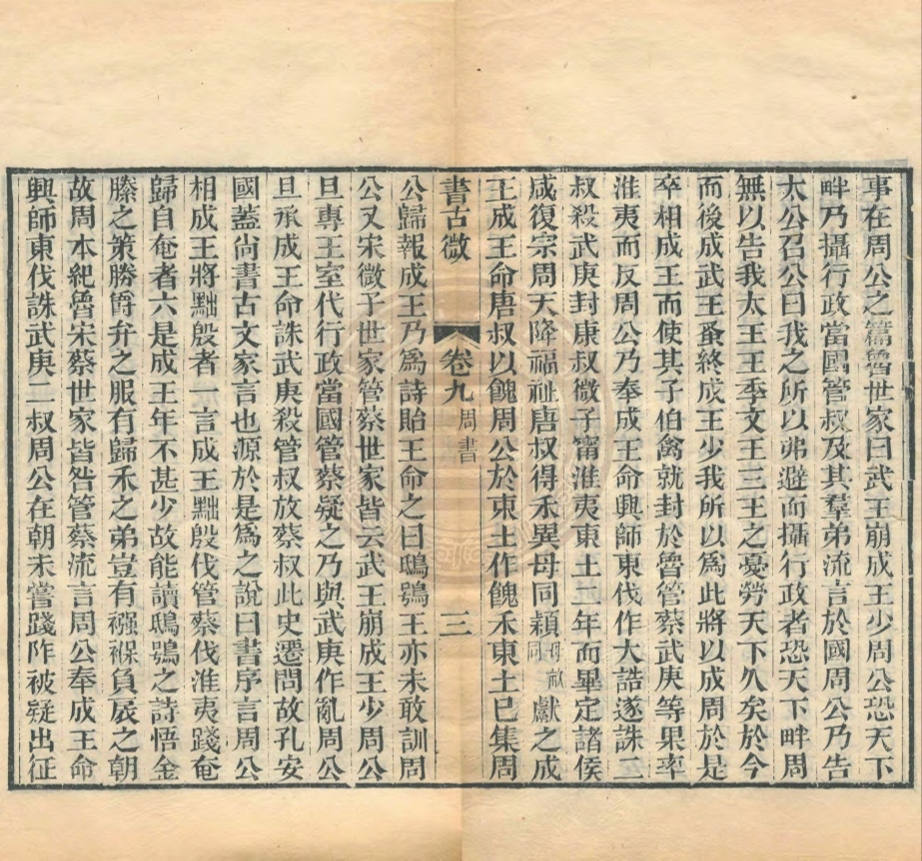 事在周公之篇魯世家曰武王崩成王少周公恐天下
畔乃攝行政當國管叔及其羣弟流言於國周公乃告
太公召公曰我之所以弗避而攝行政者恐天下畔周
無以告我太王王季文王三王之憂勞天下久矣於今
而後成武王蚤終成王少我所以爲此將以成周於是
卒相成王而使其子伯禽就封於魯管蔡武庚等果率
淮夷而反周公乃奉成王命興師東伐作大誥遂誅二
叔殺武庚封康叔微子甯淮夷東土二年而畢定諸侯
咸復宗周天降福祉唐叔得禾異母同穎 獻之成
王成王命唐叔以餽周公於東土作餽禾東土已集周
書古微 卷九 周書 三
公歸報成王乃爲詩貽王命之曰鴟鴞王亦未敢訓周
公又宋微子世家管蔡世家皆云武王崩成王少周公
旦專王室代行政當國管蔡疑之乃與武庚作亂周公
旦承成王命誅武庚殺管叔放蔡叔此史遷問故孔安
國蓋尚書古文家言也源於是爲之說曰書序言周公
相成王將黜殷者一言成王黜殷伐管蔡伐淮夷踐奄
歸自奄者六是成王年不甚少故能讀鴟鴞之詩悟金
縢之策勝爵弁之服有歸禾之弟豈有襁褓負扆之朝
故周本紀魯宋蔡世家皆咎管蔡流言周公奉成王命
興師東伐誅武庚二叔周公在朝未嘗踐阼被疑出征